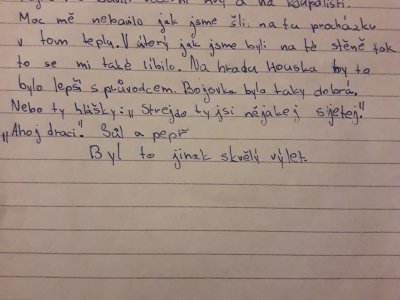 bavili večerní hry a na koupališti.
Moc mě nebavilo jak jsme šli na tu procházku
v tom teplu. V úterý jak jsme byli na té stěně tak
to se mi také líbilo. Na hradu Houska by to
bylo lepší s průvodcem. Bojovka byla taky dobrá.
Nebo ty hlášky: „Strejdo ty jsi nějakej sjetej."
„Ahoj draci". Sůl a pepř
Byl to jinak skvělý výlet.